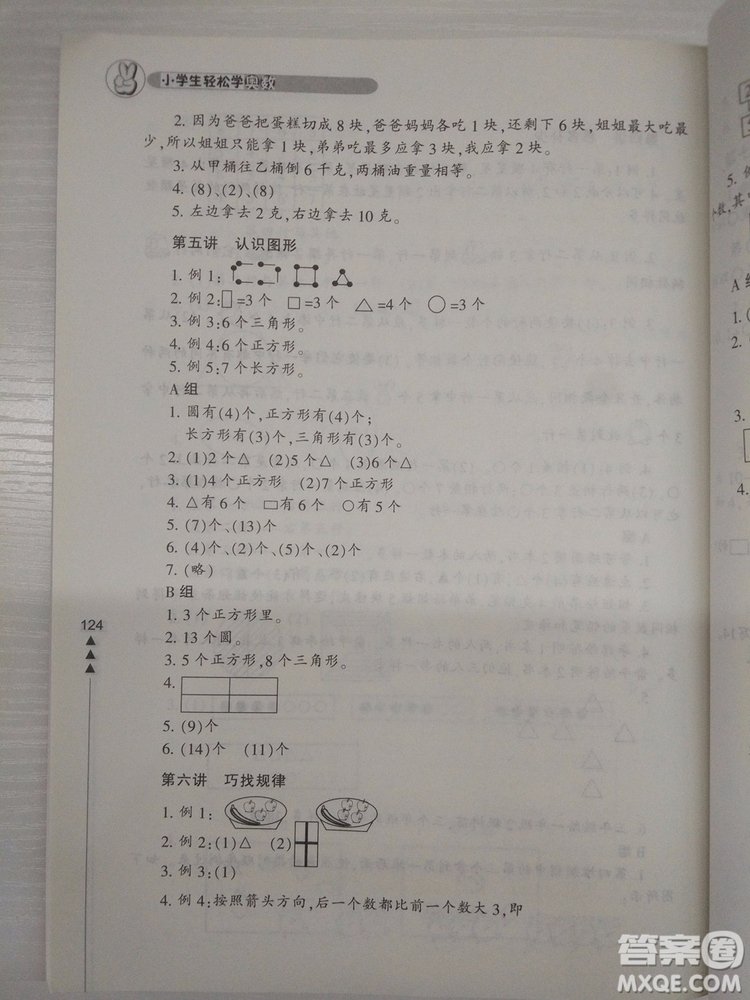 小学生轻松学奥数
2. 因为爸爸把蛋糕切成 8 块,爸爸妈妈各吃 1 块,还剩下 6 块,姐姐最大吃最
少,所以姐姐只能拿 1 块,弟弟吃最多应拿 3 块,我应拿 2 块。
3. 从甲桶往乙桶倒 6 千克,两桶油重量相等。
4. (8)、(2)、(8)
5. 左边拿去 2 克,右边拿去 10 克。
第五讲 认识图形
1. 例 1:
2. 例 2:□=3 个 □=3 个 △=4 个 ○=3 个
3. 例 3:6 个三角形。
4. 例 4:5 个正方形。
5. 例 5:7 个长方形。
A 组
1. 圆有(4)个,正方形有(4)个;
长方形有(3)个,三角形有(3)个。
2. (1)2 个△ (2)5 个△ (3)6 个△
3. (1)4 个正方形 (2)7 个正方形
4. △有 6 个 □有 6 个 ○有 5 个
5. (7)个、(13)个
6. (4)个、(2)个、(5)个、(2)个
7. (略)
B 组
1. 3 个正方形里。
2. 13 个圆。
3. 5 个正方形,8 个三角形。
4.
5. (9)个
6. (14)个 (11)个
第六讲 巧找规律
1. 例 1:
2. 例 2:(1)△ (2)
3. 例 3:(1)
4. 例 4:按照箭头方向,后一个数都比前一个数大 3,即
124
5. 例
A 组
1. (
2.
3.
4.
答案圈
MXQE.COM